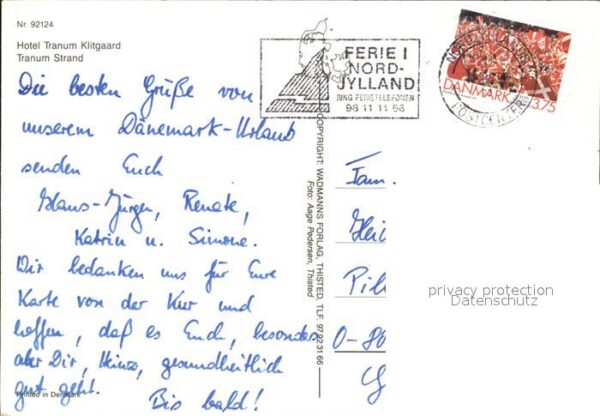 Nr. 92124
Hotel Tranum Klitgaard
Tranum Strand
Die besten Grüße von
unserem Dänemark-Urlaub
senden Euch
Hans-Jürgen, Renate,
Katrin u. Simone.
Wir bedanken uns für Eure
Karte von der Kur und
hoffen, daß es Euch, besonders
aber Dir, Heinz, gesundheitlich
gut geht.
Bis bald!
Printed in Denmark
COPYRIGHT: WADMANNS FORLAG, THISTED, TLF. 97923166
Foto: Aage Pedersen, Thisted
FERIE I
NORD-
JYLLAND
RING FERIETELEFONEN
98 11 11 66
DANMARK
3.75
POSTCENTER
Fam.
Hei
Pil
O-80
privacy protection
Datenschutz